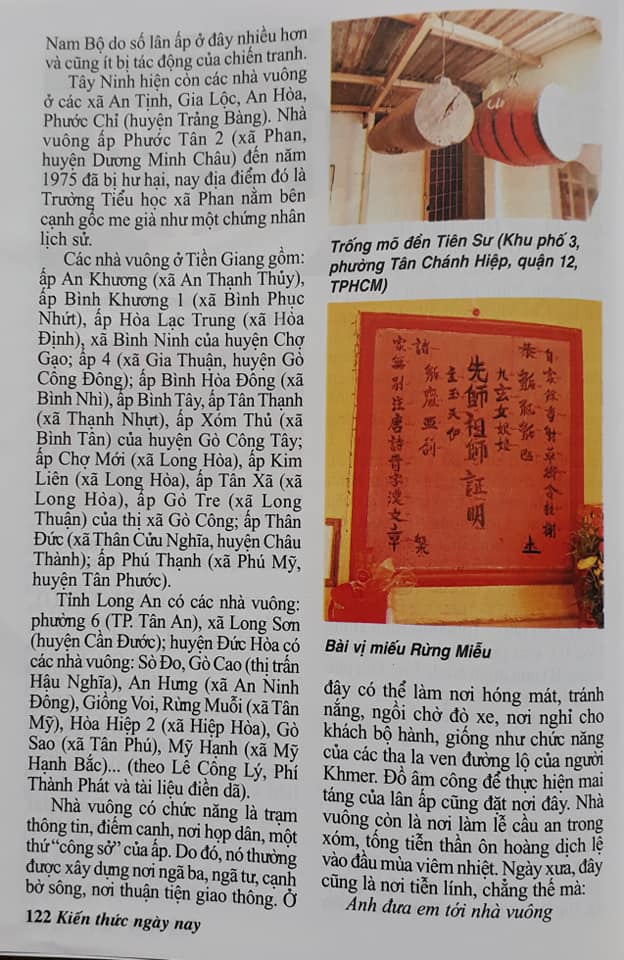 Nam Bộ do số lân ấp ở đây nhiều hơn
và cũng ít bị tác động của chiến tranh.
Tây Ninh hiện còn các nhà vuông
ở các xã An Tịnh, Gia Lộc, An Hòa,
Phước Chỉ (huyện Trảng Bàng). Nhà
vuông ấp Phước Tân 2 (xã Phan,
huyện Dương Minh Châu) đến năm
1975 đã bị hư hại, nay địa điểm đó là
Trường Tiểu học xã Phan nằm bên
cạnh gốc me già như một chứng nhân
lịch sử.
Các nhà vuông ở Tiền Giang gồm:
ấp An Khương (xã An Thạnh Thủy),
ấp Bình Khương 1 (xã Bình Phục
Nhứt), ấp Hòa Lạc Trung (xã Hòa
Định), xã Bình Ninh của huyện Chợ
Gạo; ấp 4 (xã Gia Thuận, huyện Gò
Công Đông); ấp Bình Hòa Đông (xã
Bình Nhì), ấp Bình Tây, ấp Tân Thạnh
(xã Thạnh Nhựt), ấp Xóm Thủ (xã
Bình Tân) của huyện Gò Công Tây;
ấp Chợ Mới (xã Long Hòa), ấp Kim
Liên (xã Long Hòa), ấp Tân Xã (xã
Long Hòa), ấp Gò Tre (xã Long
Thuận) của thị xã Gò Công; ấp Thân
Đức (xã Thân Cửu Nghĩa, huyện Châu
Thành); ấp Phú Thạnh (xã Phú Mỹ,
huyện Tân Phước).
Tỉnh Long An có các nhà vuông:
phường 6 (TP. Tân An), xã Long Sơn
(huyện Cần Đước); huyện Đức Hòa có
các nhà vuông: Sò Đo, Gò Cao (thị trấn
Hậu Nghĩa), An Hưng (xã An Ninh
Đông), Giồng Voi, Rừng Muỗi (xã Tân
Mỹ), Hòa Hiệp 2 (xã Hiệp Hòa), Gò
Sao (xã Tân Phú), Mỹ Hạnh (xã Mỹ
Hạnh Bắc)... (theo Lê Công Lý, Phí
Thành Phát và tài liệu điền dã).
Nhà vuông có chức năng là trạm
thông tin, điếm canh, nơi họp dân, một
thứ “công sở” của ấp. Do đó, nó thường
được xây dựng nơi ngã ba, ngã tư, cạnh
bờ sông, nơi thuận tiện giao thông. Ở
Trống mõ đền Tiên Sư (Khu phố 3,
phường Tân Chánh Hiệp, quận 12,
TPHCM)
九玄女娘娘
先師祖師証明
主玉天伊
家無別注唐詩晋字漢文章
Bài vị miếu Rừng Miễu
đây có thể làm nơi hóng mát, tránh
nắng, ngồi chờ đò xe, nơi nghỉ cho
khách bộ hành, giống như chức năng
của các tha la ven đường lộ của người
Khmer. Đồ âm công để thực hiện mai
táng của lân ấp cũng đặt nơi đây. Nhà
vuông còn là nơi làm lễ cầu an trong
xóm, tống tiễn thần ôn hoàng dịch lệ
vào đầu mùa viêm nhiệt. Ngày xưa, đây
cũng là nơi tiễn lính, chẳng thế mà:
Anh đưa em tới nhà vuông
122 Kiến thức ngày nay